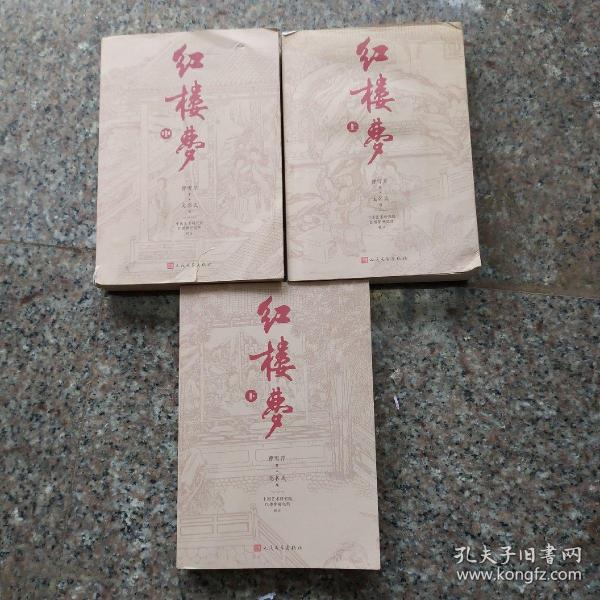 红楼梦
中
曹雪芹
著
无名氏
续
中国艺术研究院
红楼梦研究所
校注
人民文学出版社
红楼梦
上
曹雪芹
著
无名氏
续
中国艺术研究院
红楼梦研究所
校注
人民文学出版社
红楼梦
下
曹雪芹
著
无名氏
续
中国艺术研究院
红楼梦研究所
校注
人民文学出版社
孔夫子旧书网
www.kongfz.com